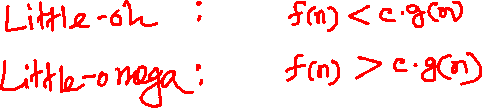 Little-oh : f(n) < c.g(n)
Little-omega : f(n) > c.g(n)